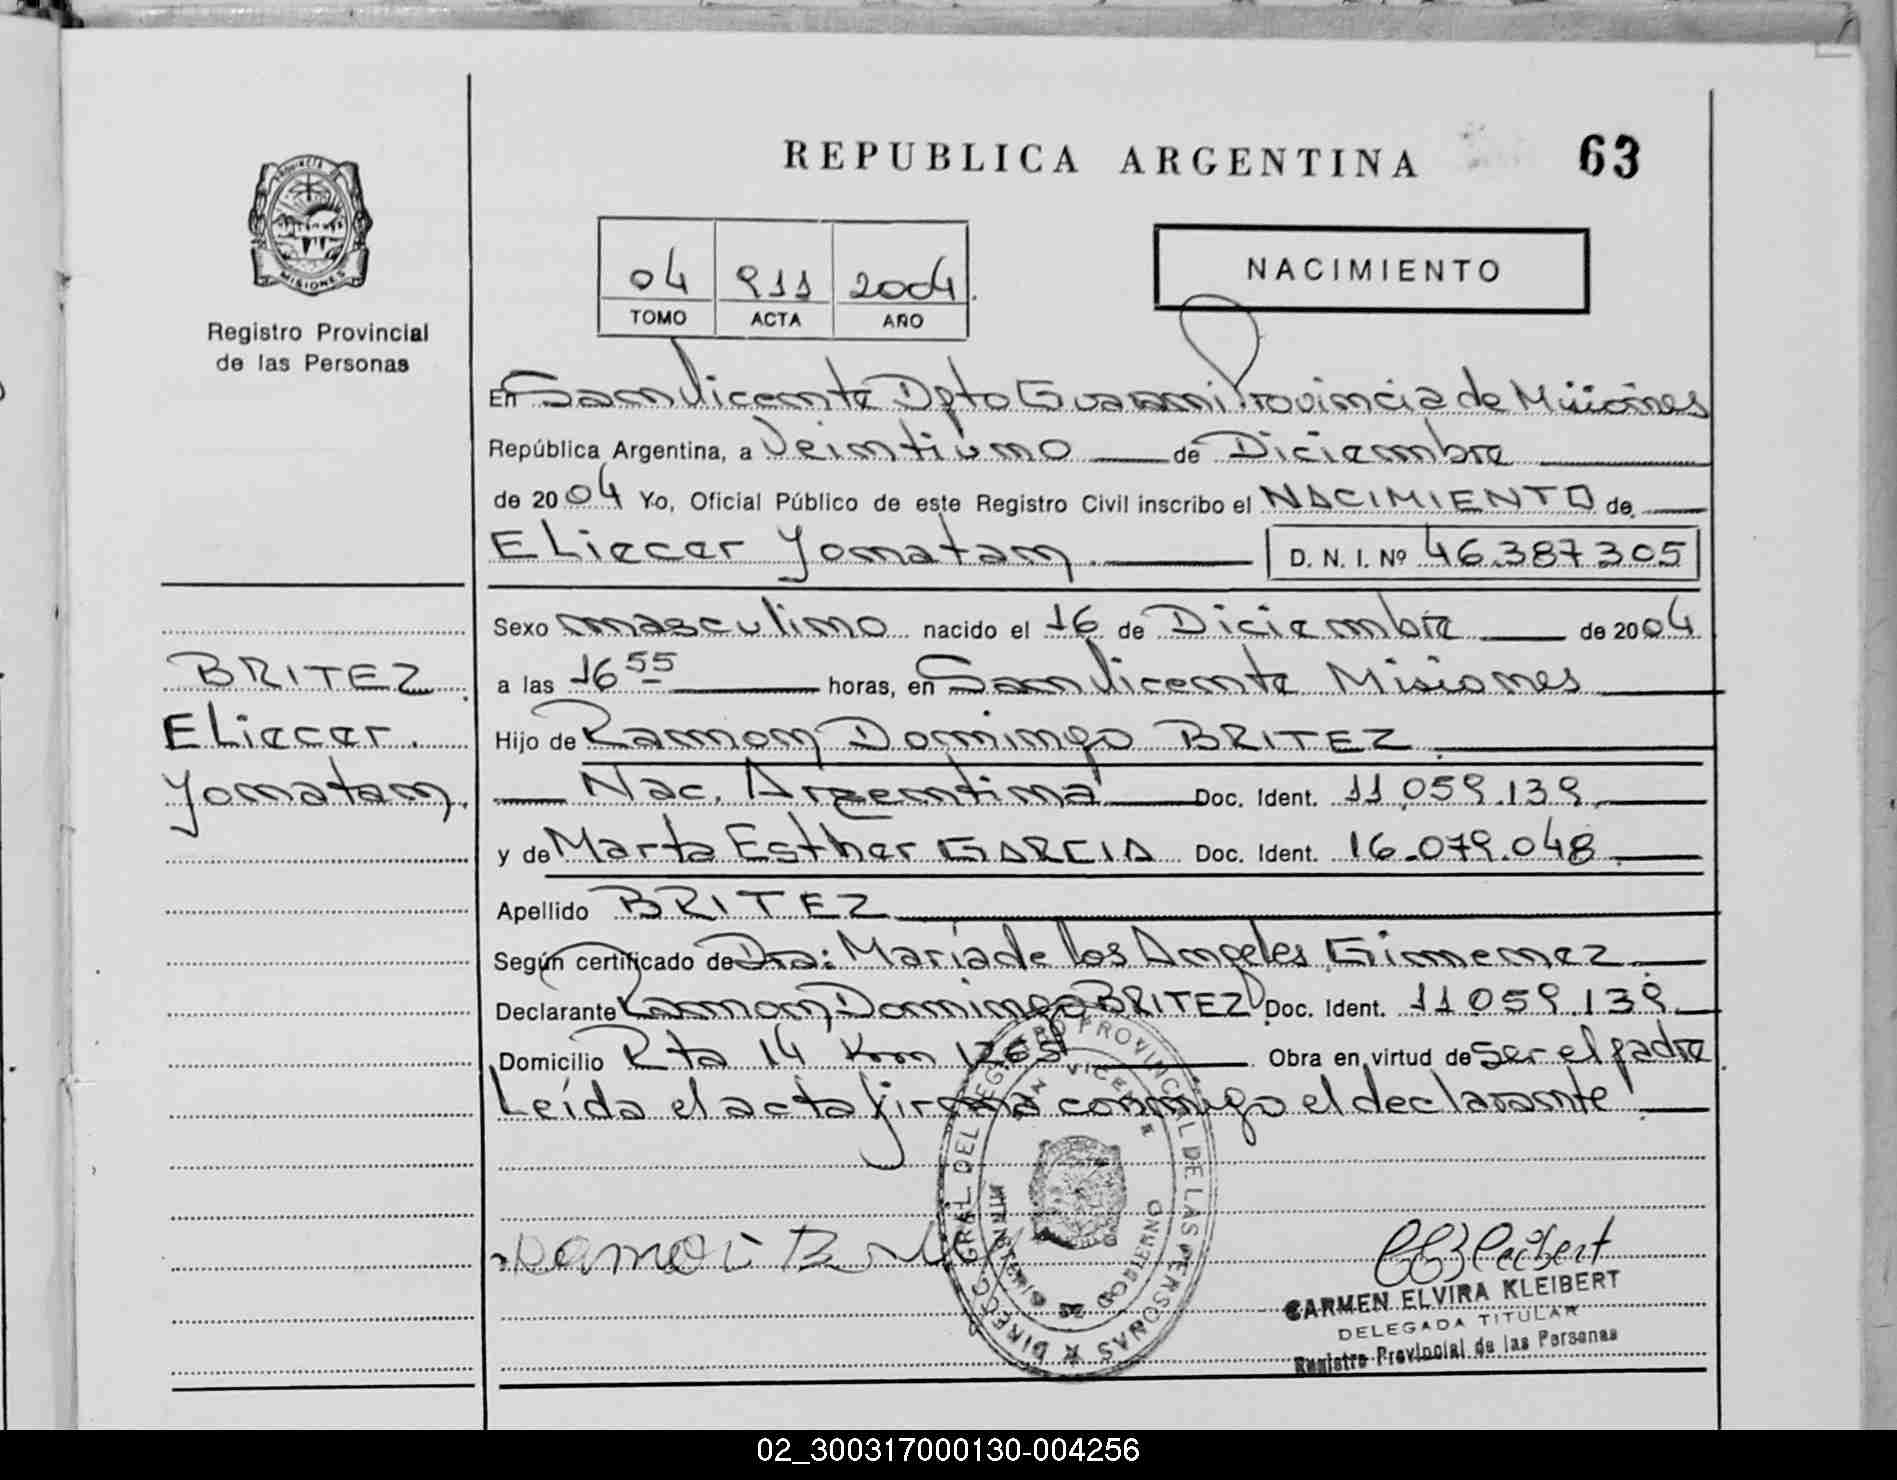 REPUBLICA ARGENTINA
63
PROVINCIA
MISIONES
Registro Provincial
de las Personas
04 911 2004
TOMO ACTA AÑO
NACIMIENTO
En San Vicente Dpto Guarani Provincia de Misiones
República Argentina, a Veintiuno de Diciembre
de 2004 Yo, Oficial Público de este Registro Civil inscribo el NACIMIENTO de
Eliecer Yonatan. D. N. I. Nº 46.387.305
Sexo masculino nacido el 16 de Diciembre de 2004
a las 16 55 horas, en San Vicente Misiones
Hijo de Ramon Domingo BRITEZ.
Nac. Argentina Doc. Ident. 11.059.139
y de Marta Esther GARCIA Doc. Ident. 16.079.048
Apellido BRITEZ
Según certificado de Dra: María de los Angeles Gimenez
Declarante Ramon Domingo BRITEZ Doc. Ident. 11.059.139
Domicilio Rta 14 Km 1265 Obra en virtud de ser el padre
Leída el acta firma conmigo el declarante
BRITEZ
Eliecer
Yonatan.
DIRECC. GRAL. DEL REGISTRO PROVINCIAL DE LAS PERSONAS
SAN VICENTE
MINISTERIO DE GOBIERNO
Ramon
CARMEN ELVIRA KLEIBERT
DELEGADA TITULAR
Registro Provincial de las Personas
02_300317000130-004256